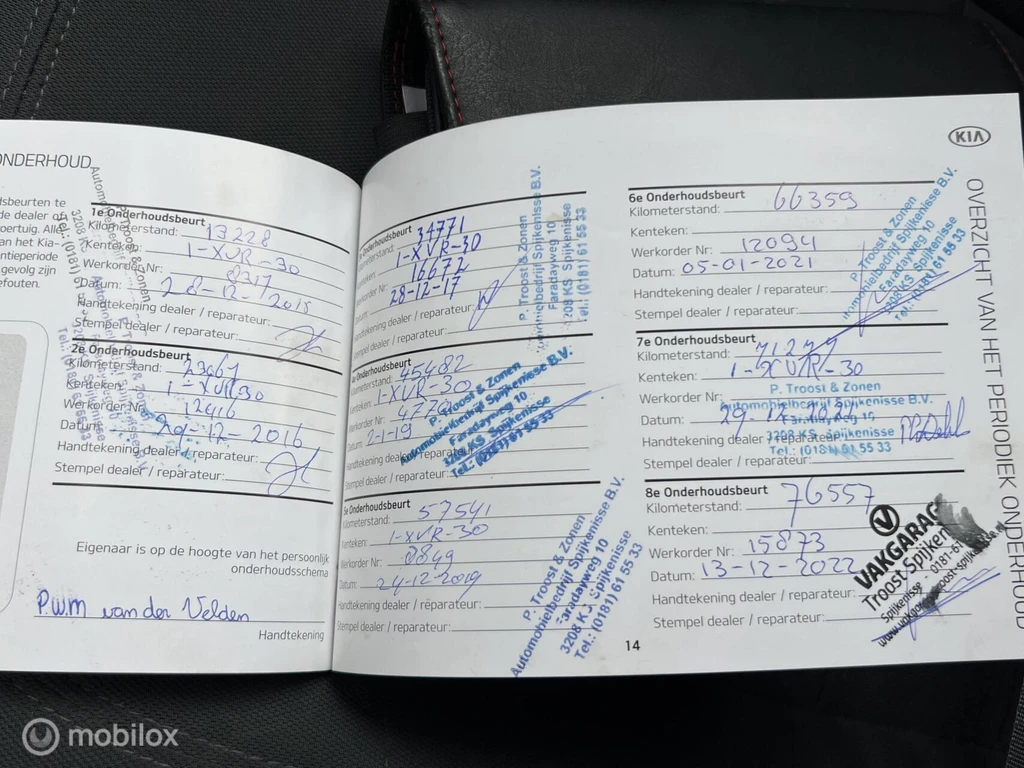 ONDERHOUD
sbeurten te
de dealer of
oertuig. Alle
an het Kia-
ntieperiode
gevolg zijn
efouten.
1e Onderhoudsbeurt
Kilometerstand: 13228
Kenteken: 1-XVR-30
Werkorder Nr:
Datum: 28-12-2015
Handtekening dealer / reparateur:
Stempel dealer / reparateur:
2e Onderhoudsbeurt
Kilometerstand: 23067
Kenteken: 1-XVR30
Werkorder Nr: 12916
Datum: 2016
Handtekening dealer / reparateur:
Stempel dealer / reparateur:
Eigenaar is op de hoogte van het persoonlijk
onderhoudsschema
P.W.M van der Velden
Handtekening
Onderhoudsbeurt
34771
1-XVR-30
Werkorder Nr: 16672
28-12-17
Handtekening dealer / reparateur:
Stempel dealer / reparateur:
P. Troost & Zonen
Automobielbedrijf Spijkenisse B.V.
Faradayweg 10
3208 KS Spijkenisse
Tel.: (0181) 61 55 33
Onderhoudsbeurt
45482
1-XVR-30
Werkorder Nr:
2-1-19
Handtekening dealer / reparateur:
Stempel dealer / reparateur:
P. Troost & Zonen
Automobielbedrijf Spijkenisse B.V.
Faradayweg 10
3208 KS Spijkenisse
Tel.: (0181) 61 55 33
5e Onderhoudsbeurt
Kilometerstand: 57541
Kenteken: 1-XVR-30
Werkorder Nr: 0849
Datum: 24-12-2019
Handtekening dealer / reparateur:
Stempel dealer / reparateur:
P. Troost & Zonen
Automobielbedrijf Spijkenisse B.V.
Faradayweg 10
3208 KS Spijkenisse
Tel.: (0181) 61 55 33
KIA
6e Onderhoudsbeurt
Kilometerstand: 66359
Kenteken:
Werkorder Nr: 12094
Datum: 05-01-2021
Handtekening dealer / reparateur:
Stempel dealer / reparateur:
P. Troost & Zonen
Automobielbedrijf Spijkenisse B.V.
Faradayweg 10
3208 KS Spijkenisse
Tel.: (0181) 61 55 33
7e Onderhoudsbeurt
Kilometerstand:
Kenteken: 1-XVR-30
Werkorder Nr:
Datum:
Handtekening dealer / reparateur:
Stempel dealer / reparateur:
P. Troost & Zonen
Automobielbedrijf Spijkenisse B.V.
Faradayweg 10
3208 KS Spijkenisse
Tel.: (0181) 61 55 33
8e Onderhoudsbeurt
Kilometerstand: 76557
Kenteken:
Werkorder Nr: 15873
Datum: 13-12-2022
Handtekening dealer / reparateur:
Stempel dealer / reparateur:
VAKGARAGE
Troost Spijkenisse
Spijkenisse - 0181-61
14
OVERZICHT VAN HET PERIODIEK ONDERHOUD
mobilox